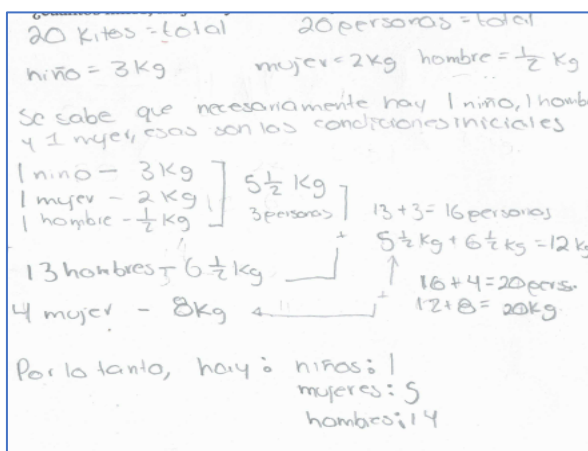 20 kilos = total 20 personas = total
niño = 3 Kg mujer = 2 Kg hombre = 1/2 Kg
Se sabe que necesariamente hay 1 niño, 1 hombre
y 1 mujer, esas son las condiciones iniciales
1 nino - 3 Kg
1 mujer - 2 Kg
1 hombre - 1/2 Kg
5 1/2 Kg
3 personas
+
13 + 3 = 16 personas
5 1/2 kg + 6 1/2 kg = 12 kg
13 hombres - 6 1/2 kg
+
16 + 4 = 20 pers.
12 + 8 = 20 kg
4 mujer - 8 Kg
Por lo tanto, hay: niños: 1
mujeres: 5
hombres: 14